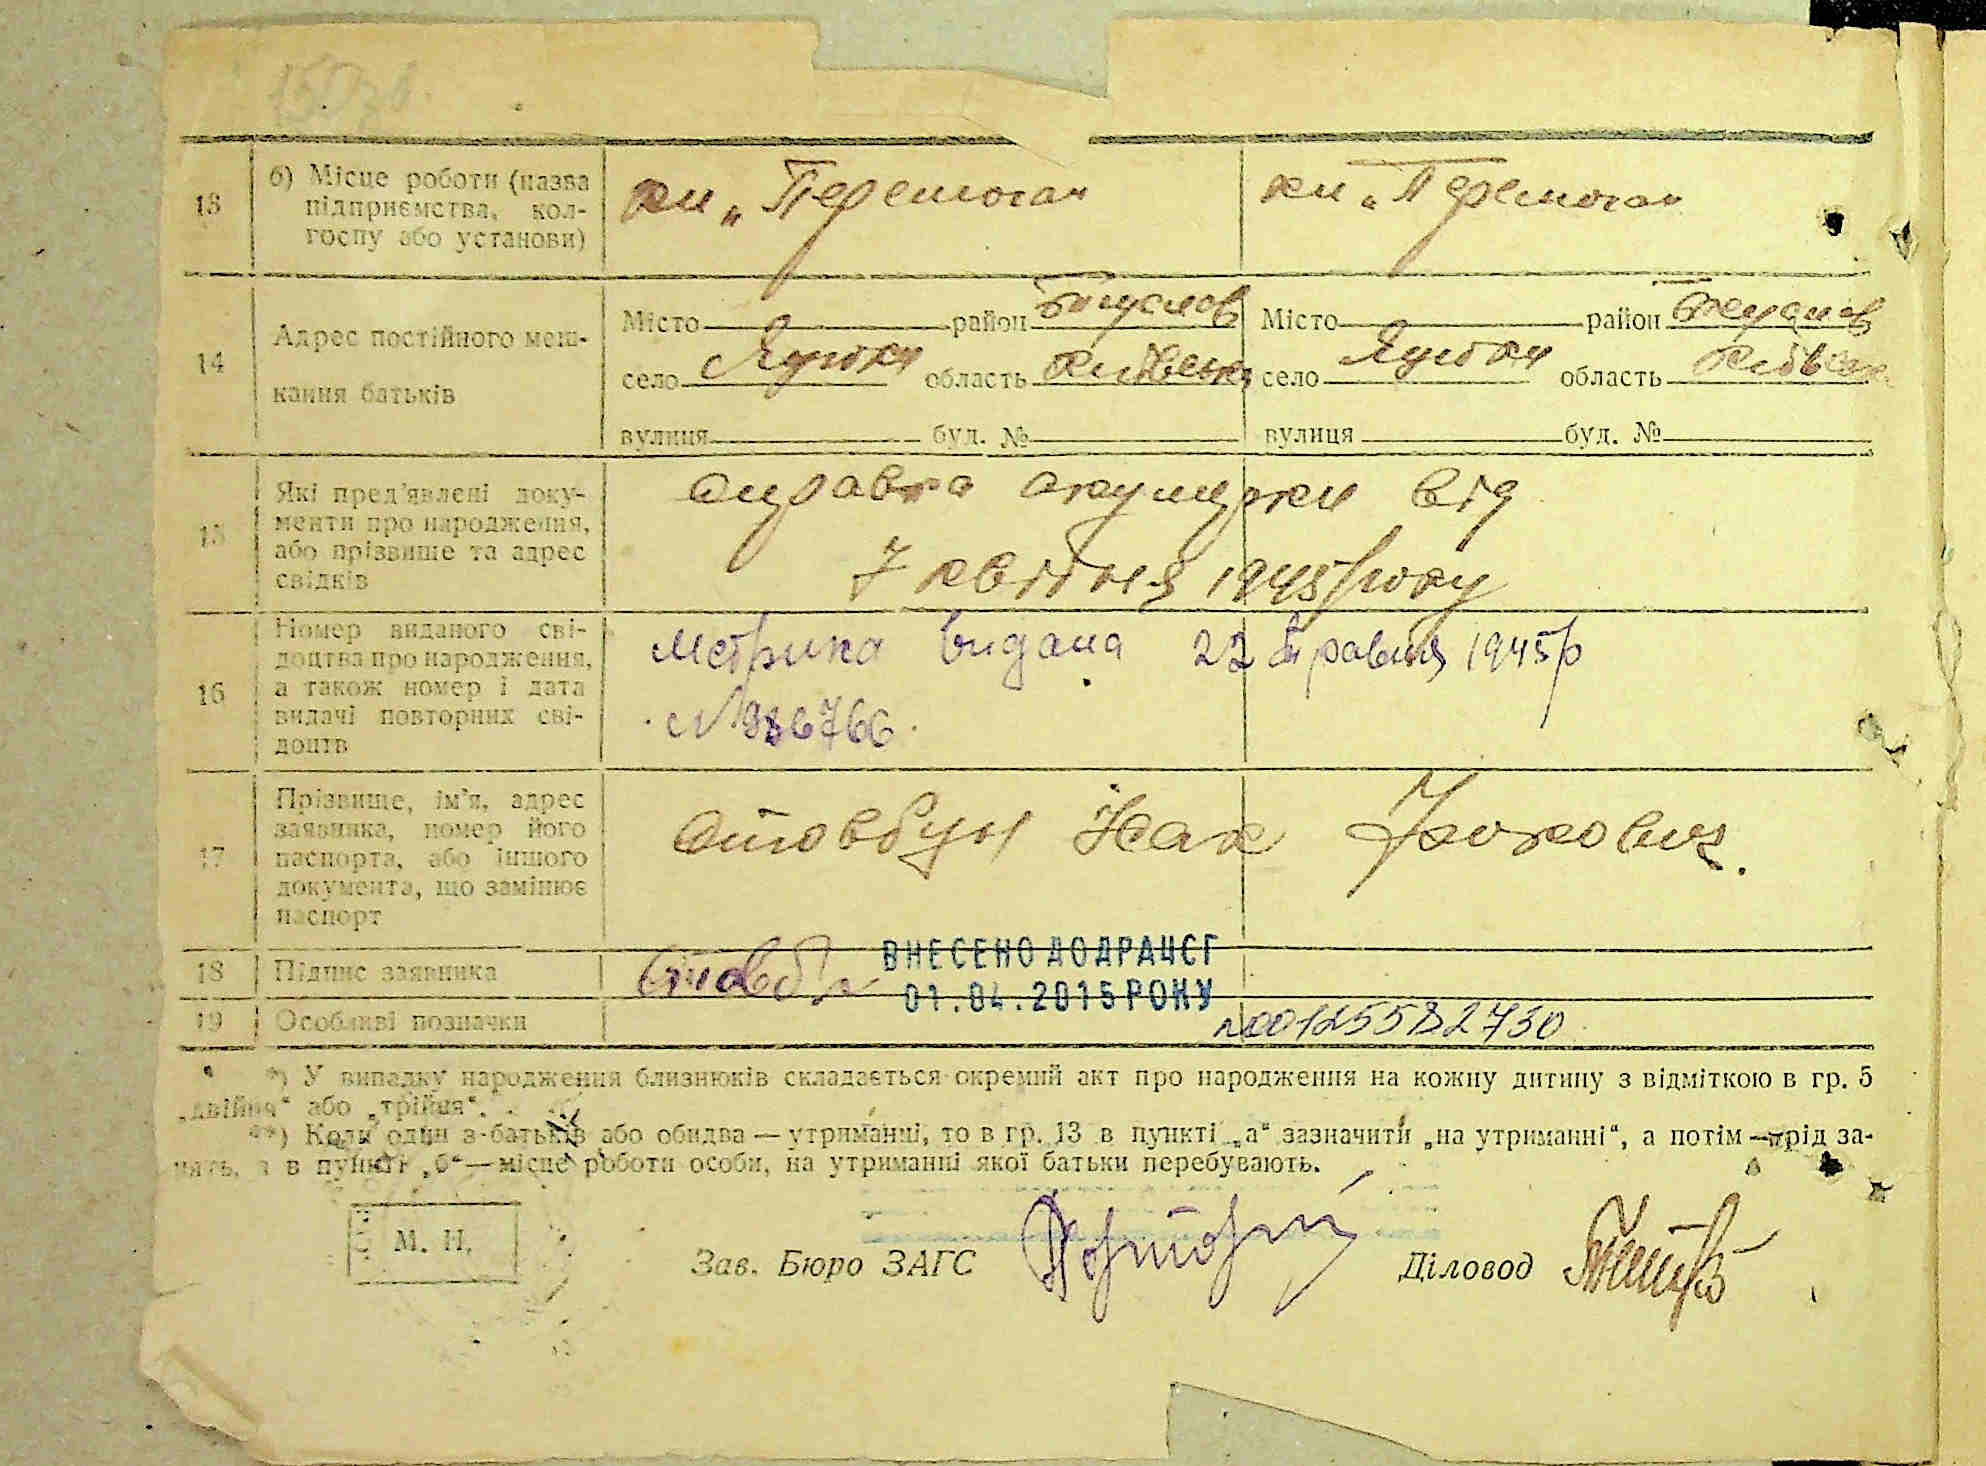 13 б) Місце роботи (назва підприємства, колгоспу або установи)
км „Перемога" км „Перемога"
14 Адрес постійного меш-
кання батьків
Місто район Богуслав Місто район
село область Київська село область Київська
вулиця буд. № вулиця буд. №
15 Які пред'явлені доку-
менти про народження,
або прізвище та адрес
свідків
справка акушерки від
7 квітня 1945 року
16 Номер виданого сві-
доцтва про народження,
а також номер і дата
видачі повторних сві-
доцтв
Метрика видана 22 травня 1945р
17 Прізвище, ім'я, адрес
заявника, номер його
паспорта, або іншого
документа, що замінює
паспорт
Стовбун
18 Підпис заявника
ВНЕСЕНО ДО ДРАЦСГ
01.04.2015 РОКУ
19 Особливі позначки
№00125582730
*) У випадку народження близнюків складається окремий акт про народження на кожну дитину з відміткою в гр. 5
„двійня" або „трійня".
**) Коли один з батьків або обидва — утриманці, то в гр. 13 в пункті „а" зазначити „на утриманні", а потім — рід за-
нять, а в пункті „б" — місце роботи особи, на утриманні якої батьки перебувають.
М. П.
Зав. Бюро ЗАГС Діловод